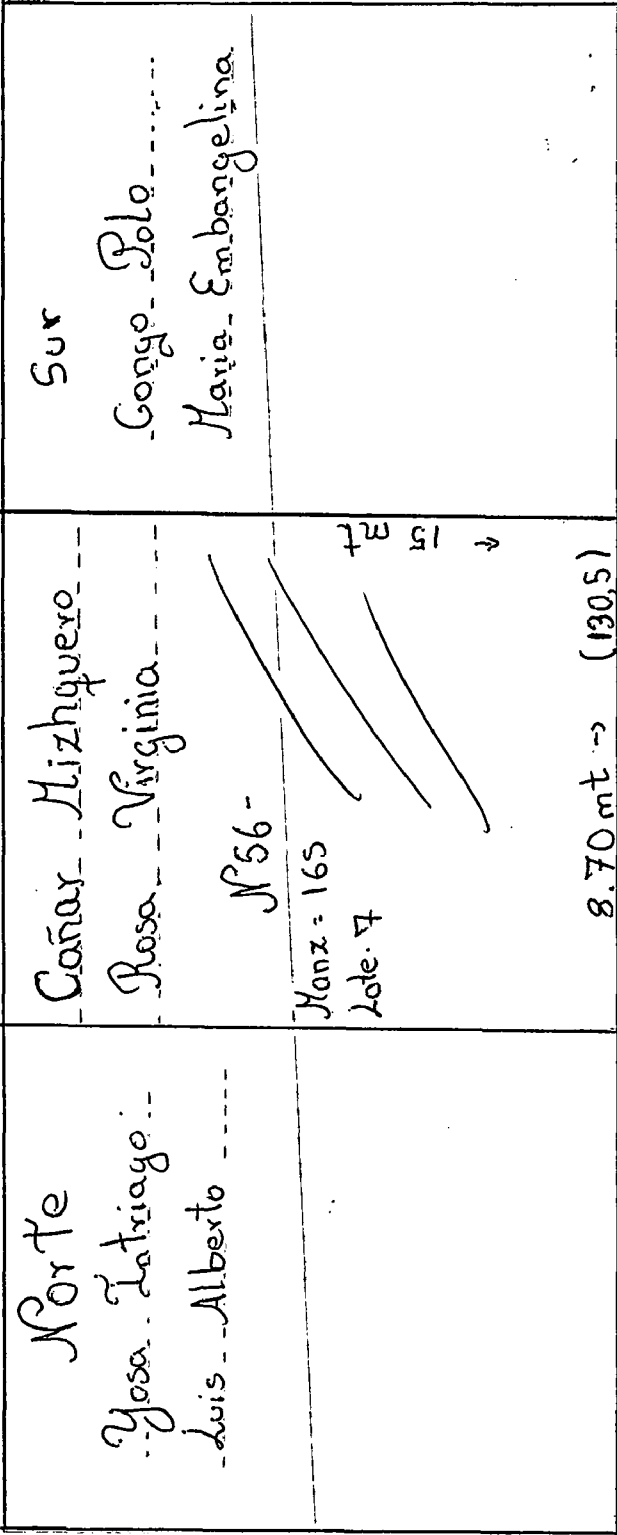 Norte
Yosa Intriago
Luis Alberto
Cañar Mizhquero
Rosa Virginia
N 56-
Manz = 165
Lote. 7
15 mt →
8.70 mt → (130,5)
Sur
Gongo Polo
Maria Embangelina